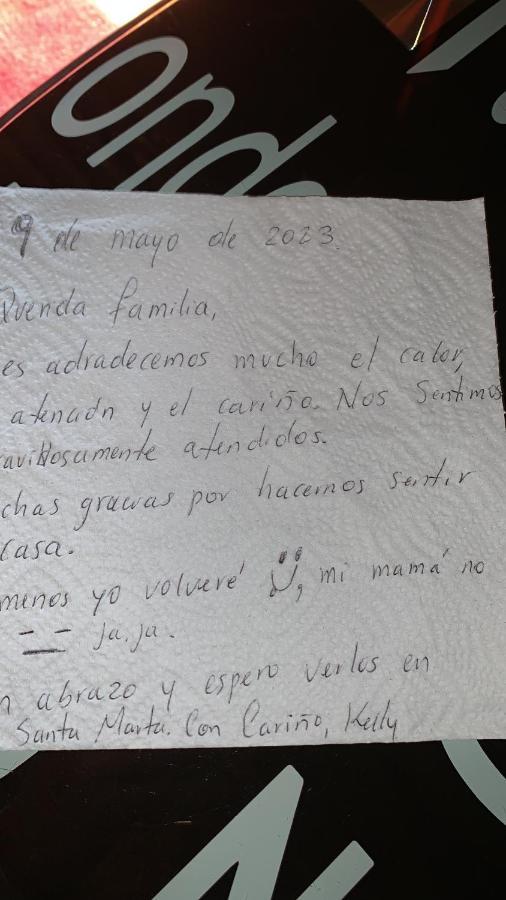 onde
9 de mayo de 2023.
Querida familia,
es adradecemos mucho el calor,
atención y el cariño. Nos Sentimos
avillosamente atendidos.
chas gracias por hacernos sentir
Casa.
menos yo volveré, mi mamá no
ja, ja.
n abrazo y espero verlos en
Santa Marta. Con Cariño, Kelly